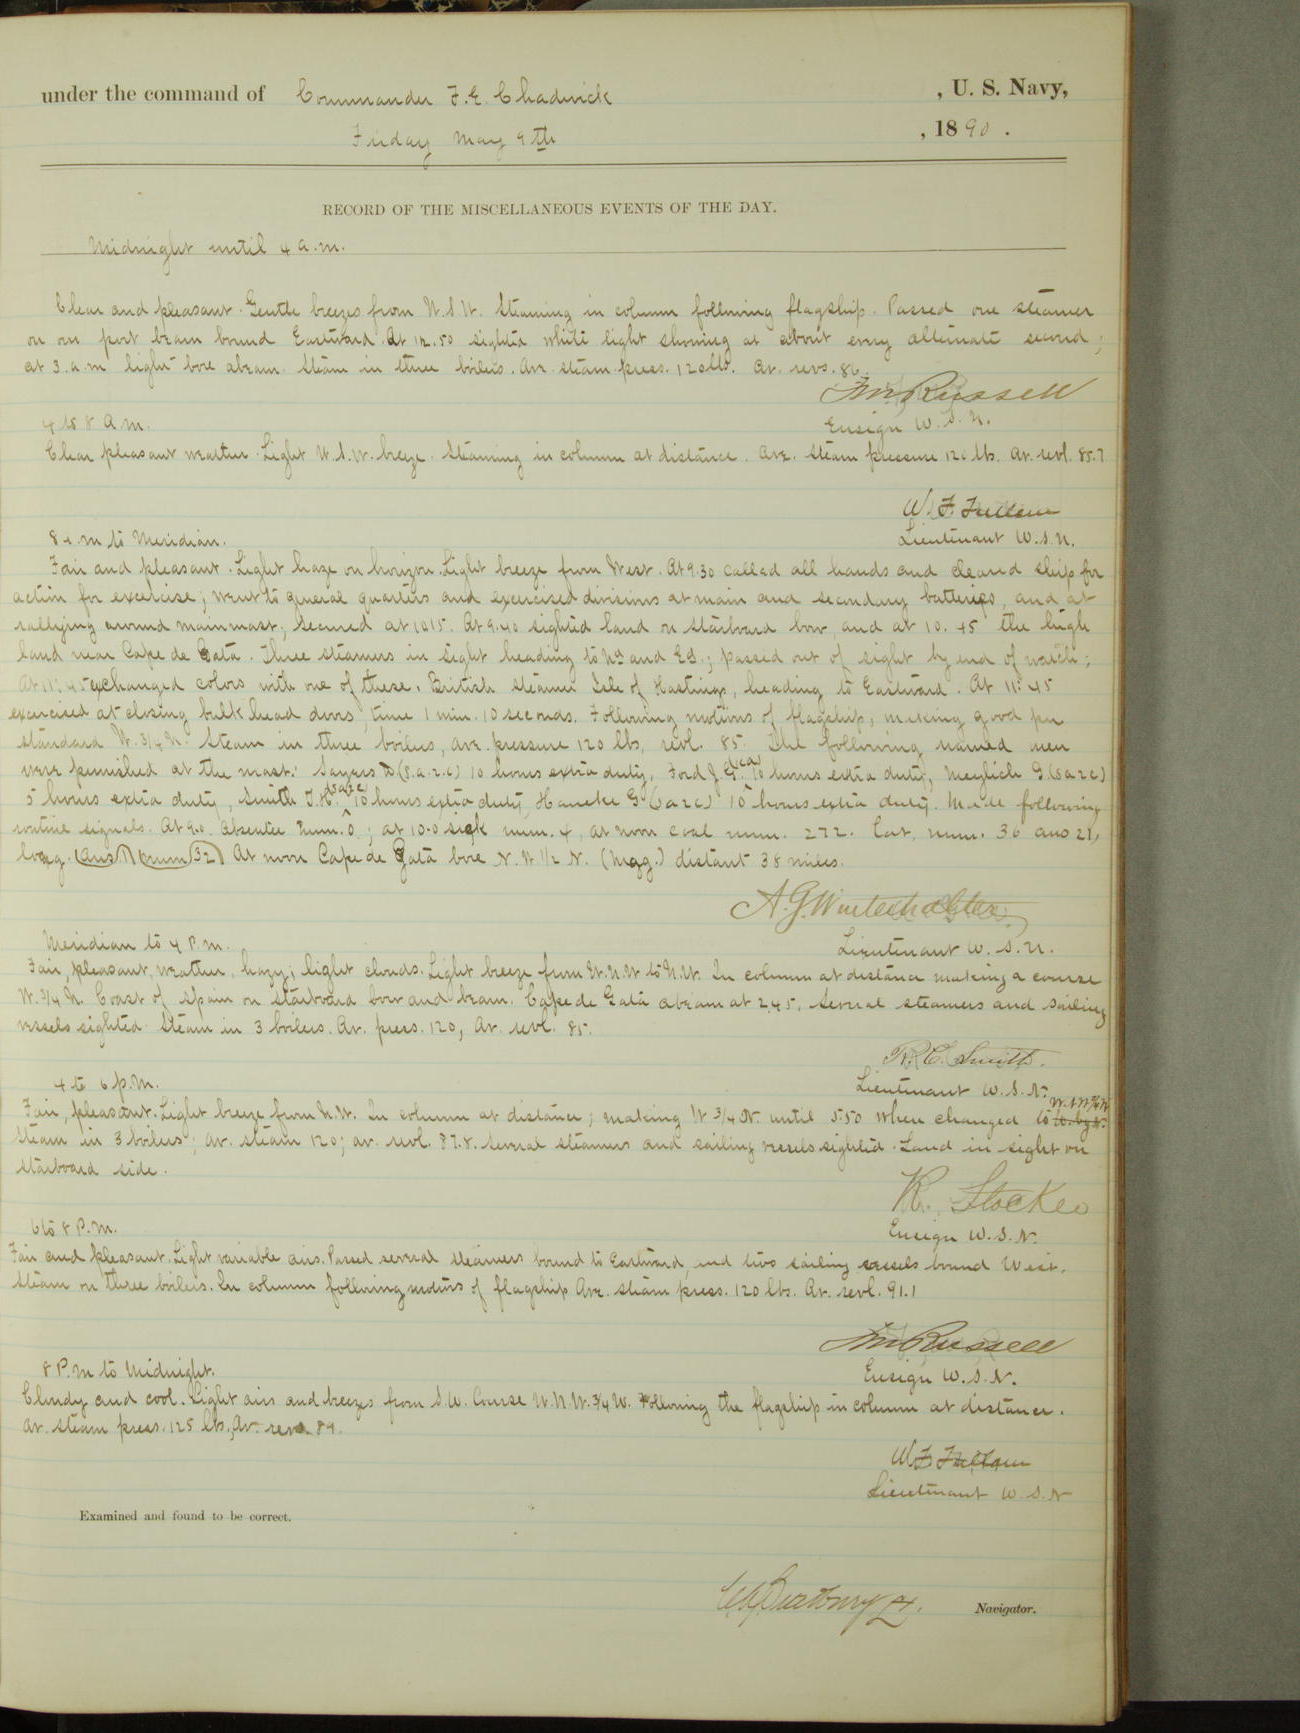 under the command of Commander F. E. Chadwick , U. S. Navy,
Friday May 9th , 1890 .
RECORD OF THE MISCELLANEOUS EVENTS OF THE DAY.
Midnight until 4 a.m.
Clear and pleasant. Gentle breezes from W.S.W. Steaming in column following flagship. Passed one steamer
on our port beam bound Eastward. At 12.50 sighted white light showing at about every alternate second;
at 3.a.m light bore abeam. Steam in three boilers. Ave steam press. 120lbs. Av. revs. 86.
Russell
Ensign U.S.N.
4 to 8 A.M.
Clear pleasant weather. Light W.S.W. breeze. Steaming in column at distance. Ave. steam pressure 120 lbs. Av. revl. 85.7
W. F. Fullam
Lieutenant U.S.N.
8 a.m to Meridian.
Fair and pleasant. Light haze on horizon. Light breeze from West. At 9.30 called all hands and cleared ship for
action for excercise; went to general quarters and exercised divisions at main and secondary batteries, and at
rallying around mainmast; secured at 1015. At 9.40 sighted land on starboard bow, and at 10.45 the high
land near Cape de Gata. Three steamers in sight heading to and ; passed out of sight by end of watch;
At 11.45 exchanged colors with one of these, British steamer Isle of Hastings, heading to Eastward. At 11.45
exercised at closing bulk head doors, time 1 min. 10 seconds. Following motions of flagship, making good per
standard W. 3/4 N. Steam in three boilers, ave. pressure 120 lbs, revl. 85. The following named men
were punished at the mast: Sayers (S.a.2.c) 10 hours extra duty, Ford J. G. 10 hours extra duty, G (S a 2 c)
5 hours extra duty, Smith J. H. (S a 2 c) 10 hours extra duty, G. (S a 2 c) 10 hours extra duty. Made following
routine signals. At 9.0. Absentee num. 0; at 10.0 sick num. 4, at noon coal num. 272. Lat. num. 36 and 21,
long. (ans 1) (num 32) At noon Cape de Gata bore N. W 1/2 N. (mag.) distant 38 miles.
A. G. Winterhalter
Lieutenant U. S. N.
Meridian to 4 P.M.
Fair, pleasant, weather, hazy; light clouds. Light breeze from W.N.W to N.W. In column at distance making a course
W. 3/4 N. Coast of Spain on starboard bow and beam. Cape de Gata abeam at 2.45. Several steamers and sailing
vessels sighted. Steam in 3 boilers. Av. press. 120, Av. revl. 85.
R. C. Smith.
Lieutenant U.S.N.
4 to 6 p.m.
Fair, pleasant. Light breeze from N.W. In column at distance; making W 3/4 N. until 5.50 when changed to W. by N.
Steam in 3 boilers; av. steam 120; av. revl. 87.8. Several steamers and sailing vessels sighted. Land in sight on
starboard side.
R. Stocker
Ensign U.S.N.
6 to 8 P.M.
Fair and pleasant. Light variable airs. Passed several steamers bound to Eastward, and two sailing vessels bound West.
Steam on three boilers. In column following motions of flagship Ave. steam press. 120 lbs. Av. revl. 91.1
Russell
Ensign U.S.N.
8 P.M to Midnight.
Cloudy and cool. Light airs and breezes from S.W. Course W.N.W. 3/4 W. Following the flagship in column at distance.
Av. steam press. 125 lbs., Av. revs. 89.
W. F. Fullam
Lieutenant U.S.N
Examined and found to be correct.
Navigator.